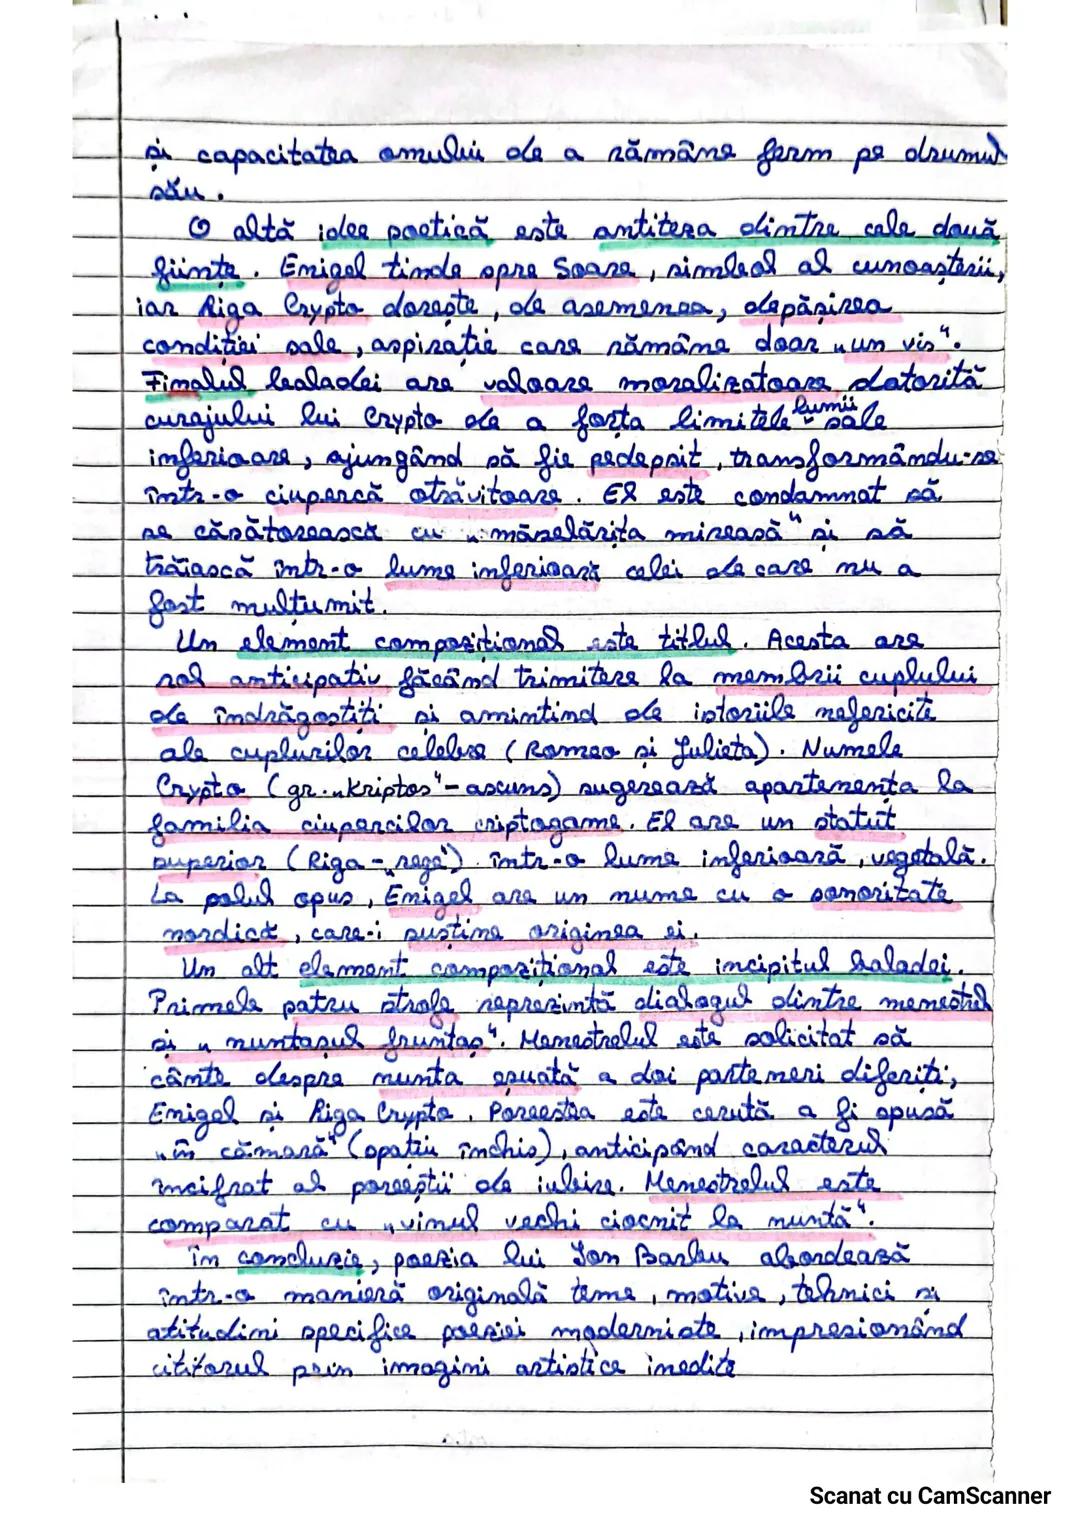 și capacitatea omului de a rămâne ferm pe drumul
său.
O altă idee poetică este antiteza dintre cele două
ființe. Enigel tinde spre Soare, simbol al cunoașterii,
iar Riga Crypto dorește, de asemenea, depășirea
condiției sale, aspirație care rămâne doar „un vis".
Finalul baladei are valoare moralizatoare datorită
curajului lui Crypto de a forța limitele lumii sale
inferioare, ajungând să fie pedepsit, transformându-se
într-o ciupercă otrăvitoare. El este condamnat să
se căsătorească cu „măselărița mireasă" și să
trăiască într-o lume inferioară celei de care nu a
fost mulțumit.
Un element compozițional este titlul. Acesta are
rol anticipativ făcând trimitere la membrii cuplului
de îndrăgostiți și amintind de istoriile nefericite
ale cuplurilor celebre (Romeo și Julieta). Numele
Crypto (gr. „Kriptos"- ascuns) sugerează apartenența la
familia ciupercilor criptogame. El are un statut
superior (Riga - „rege") într-o lume inferioară, vegetală.
La polul opus, Enigel are un nume cu o sonoritate
nordică, care-i susține originea ei.
Un alt element compozițional este incipitul baladei.
Primele patru strofe reprezintă dialogul dintre menestrel
și „nuntașul fruntaș". Menestrelul este solicitat să
cânte despre nunta eșuată a doi parteneri diferiți,
Enigel și Riga Crypto. Poveestea este cerută a fi spusă
„în cămară" (spațiu închis), anticipând caracterul
incifrat al poveeștii de iubire. Menestrelul este
comparat cu „vinul vechi ciocnit la nuntă".
În concluzie, poezia lui Ion Barbu abordează
într-o manieră originală teme, motive, tehnici și
atitudini specifice poeziei moderniste, impresionând
cititorul prin imagini artistice inedite
Scanat cu CamScanner